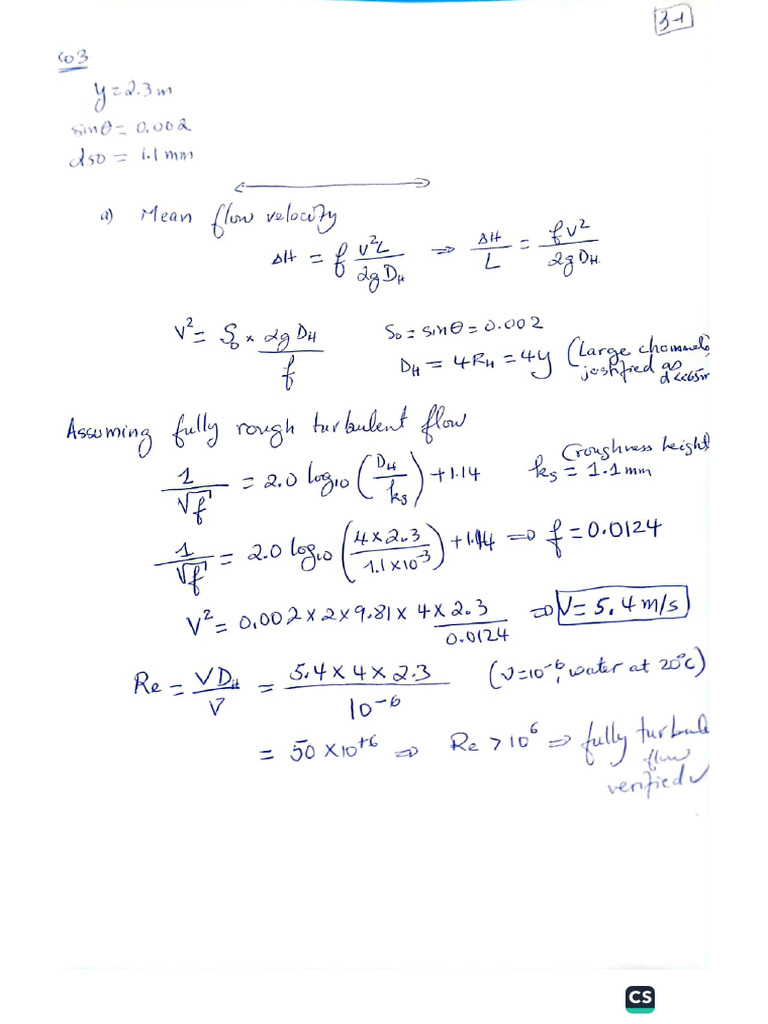 3-1
Q3
y = 2.3 m
sinθ = 0.002
d50 = 1.1 mm
a) Mean flow velocity
ΔH = f V²L / 2gD_H ⇒ ΔH / L = f V² / 2gD_H
V² = S₀ × 2gD_H / f
S₀ = sinθ = 0.002
D_H = 4R_H = 4y (Large channels
justified as
d <<65m
Assuming fully rough turbulent flow
1 / √f = 2.0 log₁₀ (D_H / ks) + 1.14
(roughness height)
ks = 1.1 mm
1 / √f = 2.0 log₁₀ (4 × 2.3 / 1.1 × 10⁻³) + 1.14 ⇒ f = 0.0124
V² = 0.002 × 2 × 9.81 × 4 × 2.3 / 0.0124 ⇒ V = 5.4 m/s
Re = V D_H / ν = 5.4 × 4 × 2.3 / 10⁻⁶ (ν = 10⁻⁶, water at 20°C)
= 50 × 10⁺⁶ ⇒ Re > 10⁶ ⇒ fully turbule
flow
verified ✓
CS